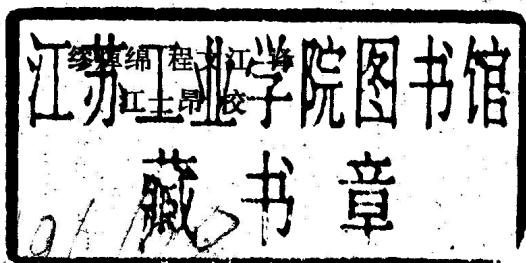 江苏工业学院图书馆
藏书章
绵 程文江 译
江士昂 校